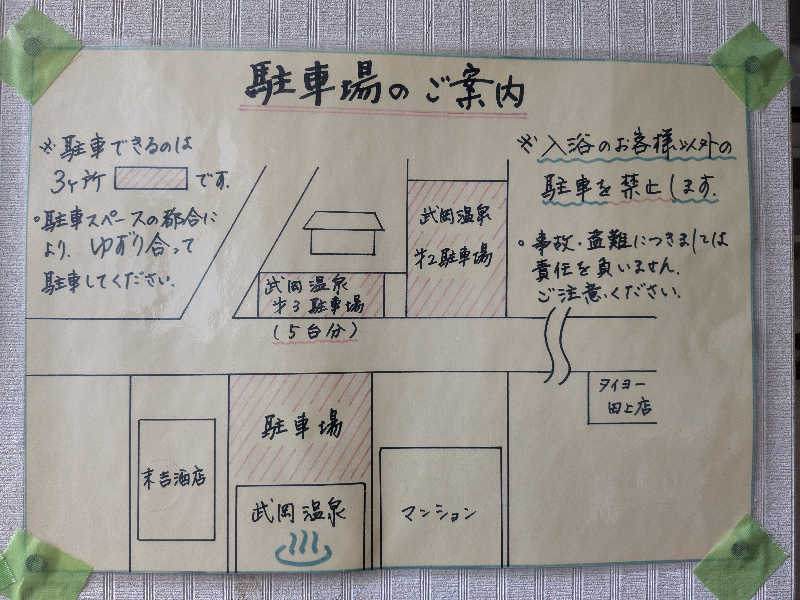 駐車場のご案内
※駐車できるのは
3ヶ所 です.
・駐車スペースの都合に
より.ゆずり合って
駐車してください.
※入浴のお客様以外の
駐車を禁止します.
・事故・盗難につきましては
責任を負いません.
ご注意ください.
武岡温泉
㐧2駐車場
武岡温泉
㐧3駐車場
(5台分)
タイヨー
田上店
駐車場
末吉酒店
武岡温泉
マンション